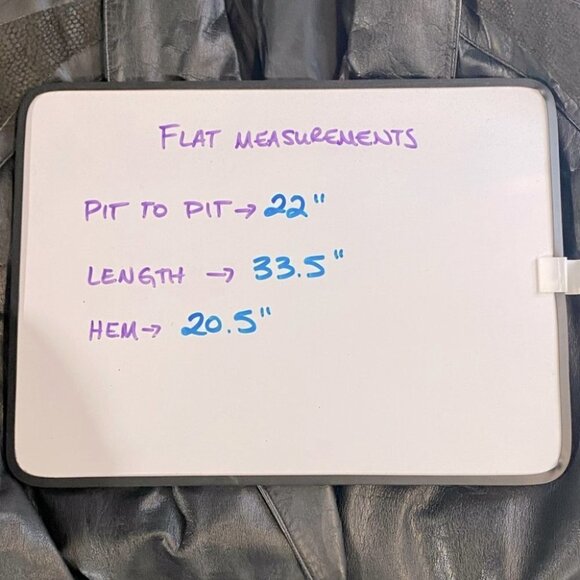 FLAT MEASUREMENTS
PIT TO PIT → 22"
LENGTH → 33.5"
HEM → 20.5"